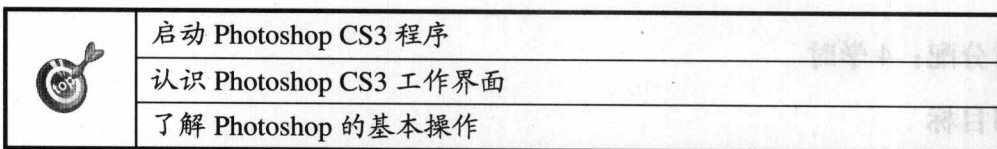 启动 Photoshop CS3 程序
认识 Photoshop CS3 工作界面
了解 Photoshop 的基本操作
top
分配：4 学时
目标